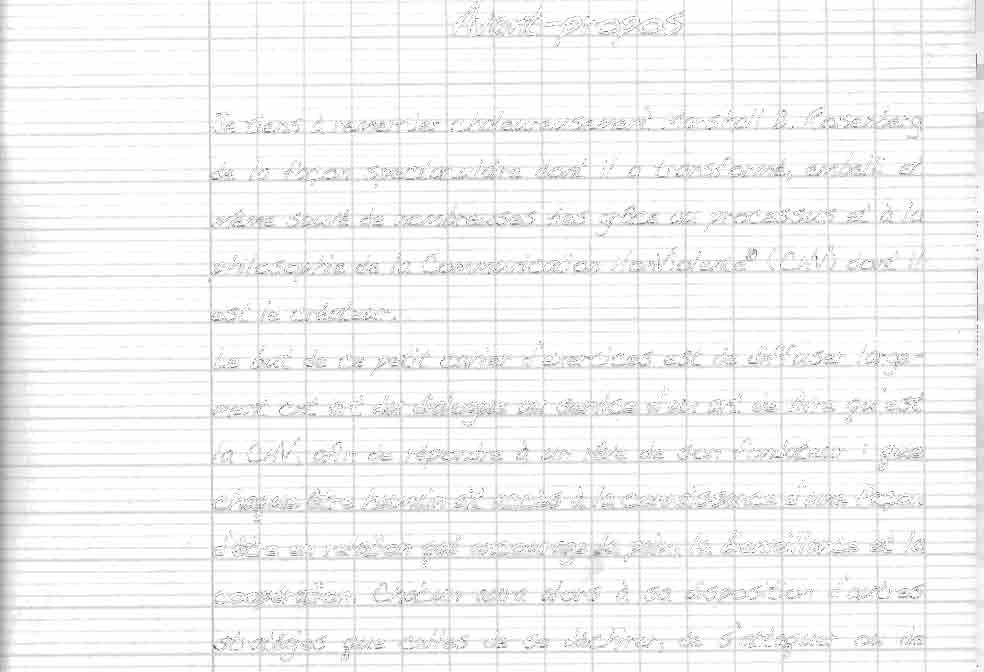 Avant-propos
Je tiens à remercier chaleureusement Marshall B. Rosenberg
de la façon spectaculaire dont il a transformé, embelli et
même sauvé de nombreuses vies grâce au processus et à la
philosophie de la Communication NonViolente® (CNV) dont il
est le créateur.
Le but de ce petit cahier d'exercices est de diffuser large-
ment cet art du dialogue au service d'un art de vivre qu'est
la CNV, afin de répondre à un rêve de son fondateur : que
chaque être humain ait accès à la connaissance d'une façon
d'être en relation qui encourage la paix, la bienveillance et la
coopération. Chacun aura alors à sa disposition d'autres
stratégies que celles de se déchirer, de s'attaquer ou de